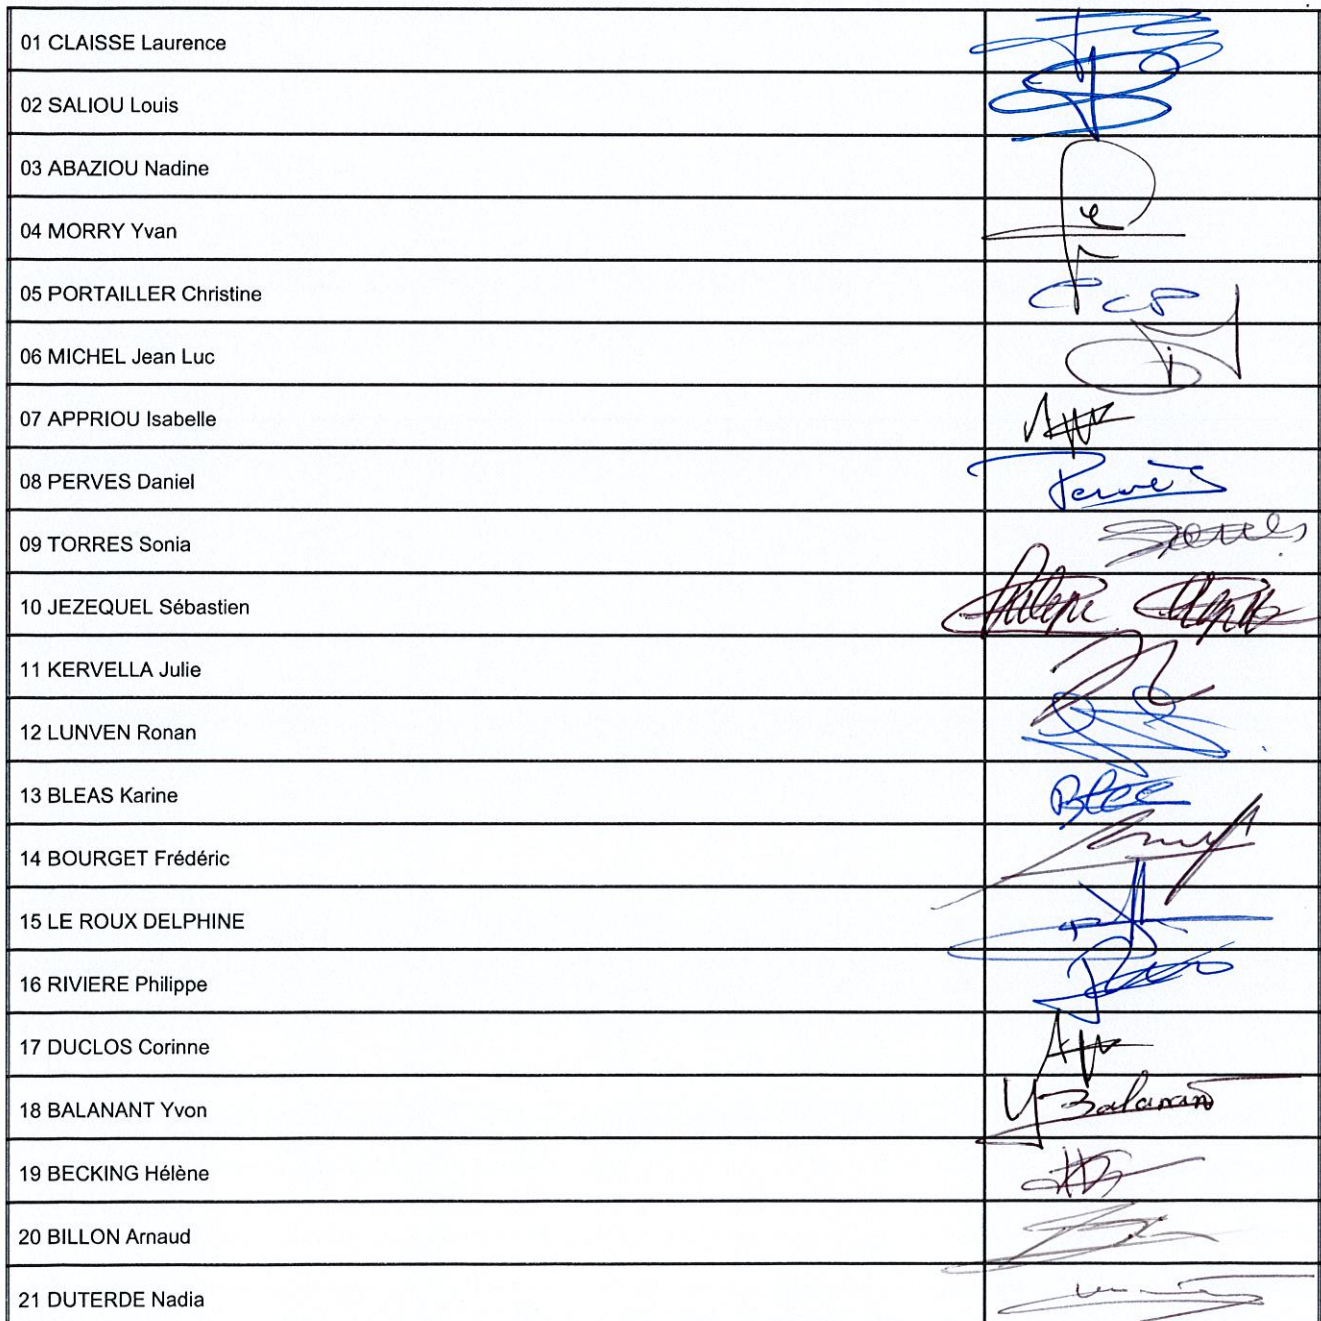 01 CLAISSE Laurence
02 SALIOU Louis
03 ABAZIOU Nadine
04 MORRY Yvan
05 PORTAILLER Christine
06 MICHEL Jean Luc
07 APPRIOU Isabelle
08 PERVES Daniel
Perves
09 TORRES Sonia
10 JEZEQUEL Sébastien
11 KERVELLA Julie
12 LUNVEN Ronan
13 BLEAS Karine
14 BOURGET Frédéric
15 LE ROUX DELPHINE
16 RIVIERE Philippe
17 DUCLOS Corinne
18 BALANANT Yvon
Y Balanant
19 BECKING Hélène
20 BILLON Arnaud
21 DUTERDE Nadia